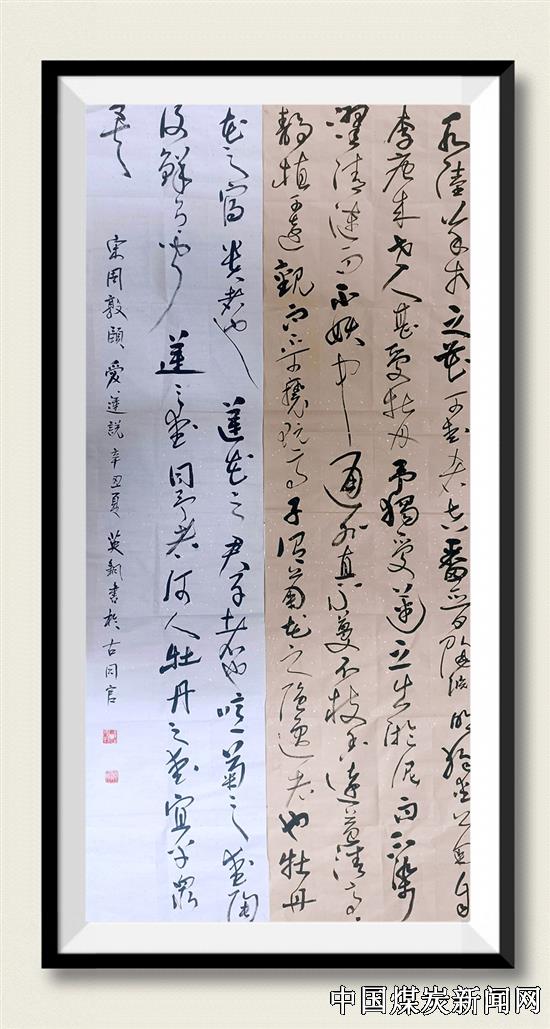 水陸草木之花可爱者甚蕃晋陶渊明独爱菊自
李唐来世人甚爱牡丹予獨爱蓮之出淤泥而不染
濯清漣而不妖中通外直不蔓不枝香遠益清亭亭
静植可遠觀而不可褻玩焉予謂菊花之隐逸者也牡丹
花之富贵者也蓮花之君子者也噫菊之爱陶
后鮮有闻蓮之爱同予者何人牡丹之爱宜乎眾
矣
宋周敦頤愛蓮説辛丑夏英書於古同官
中国煤炭新闻网